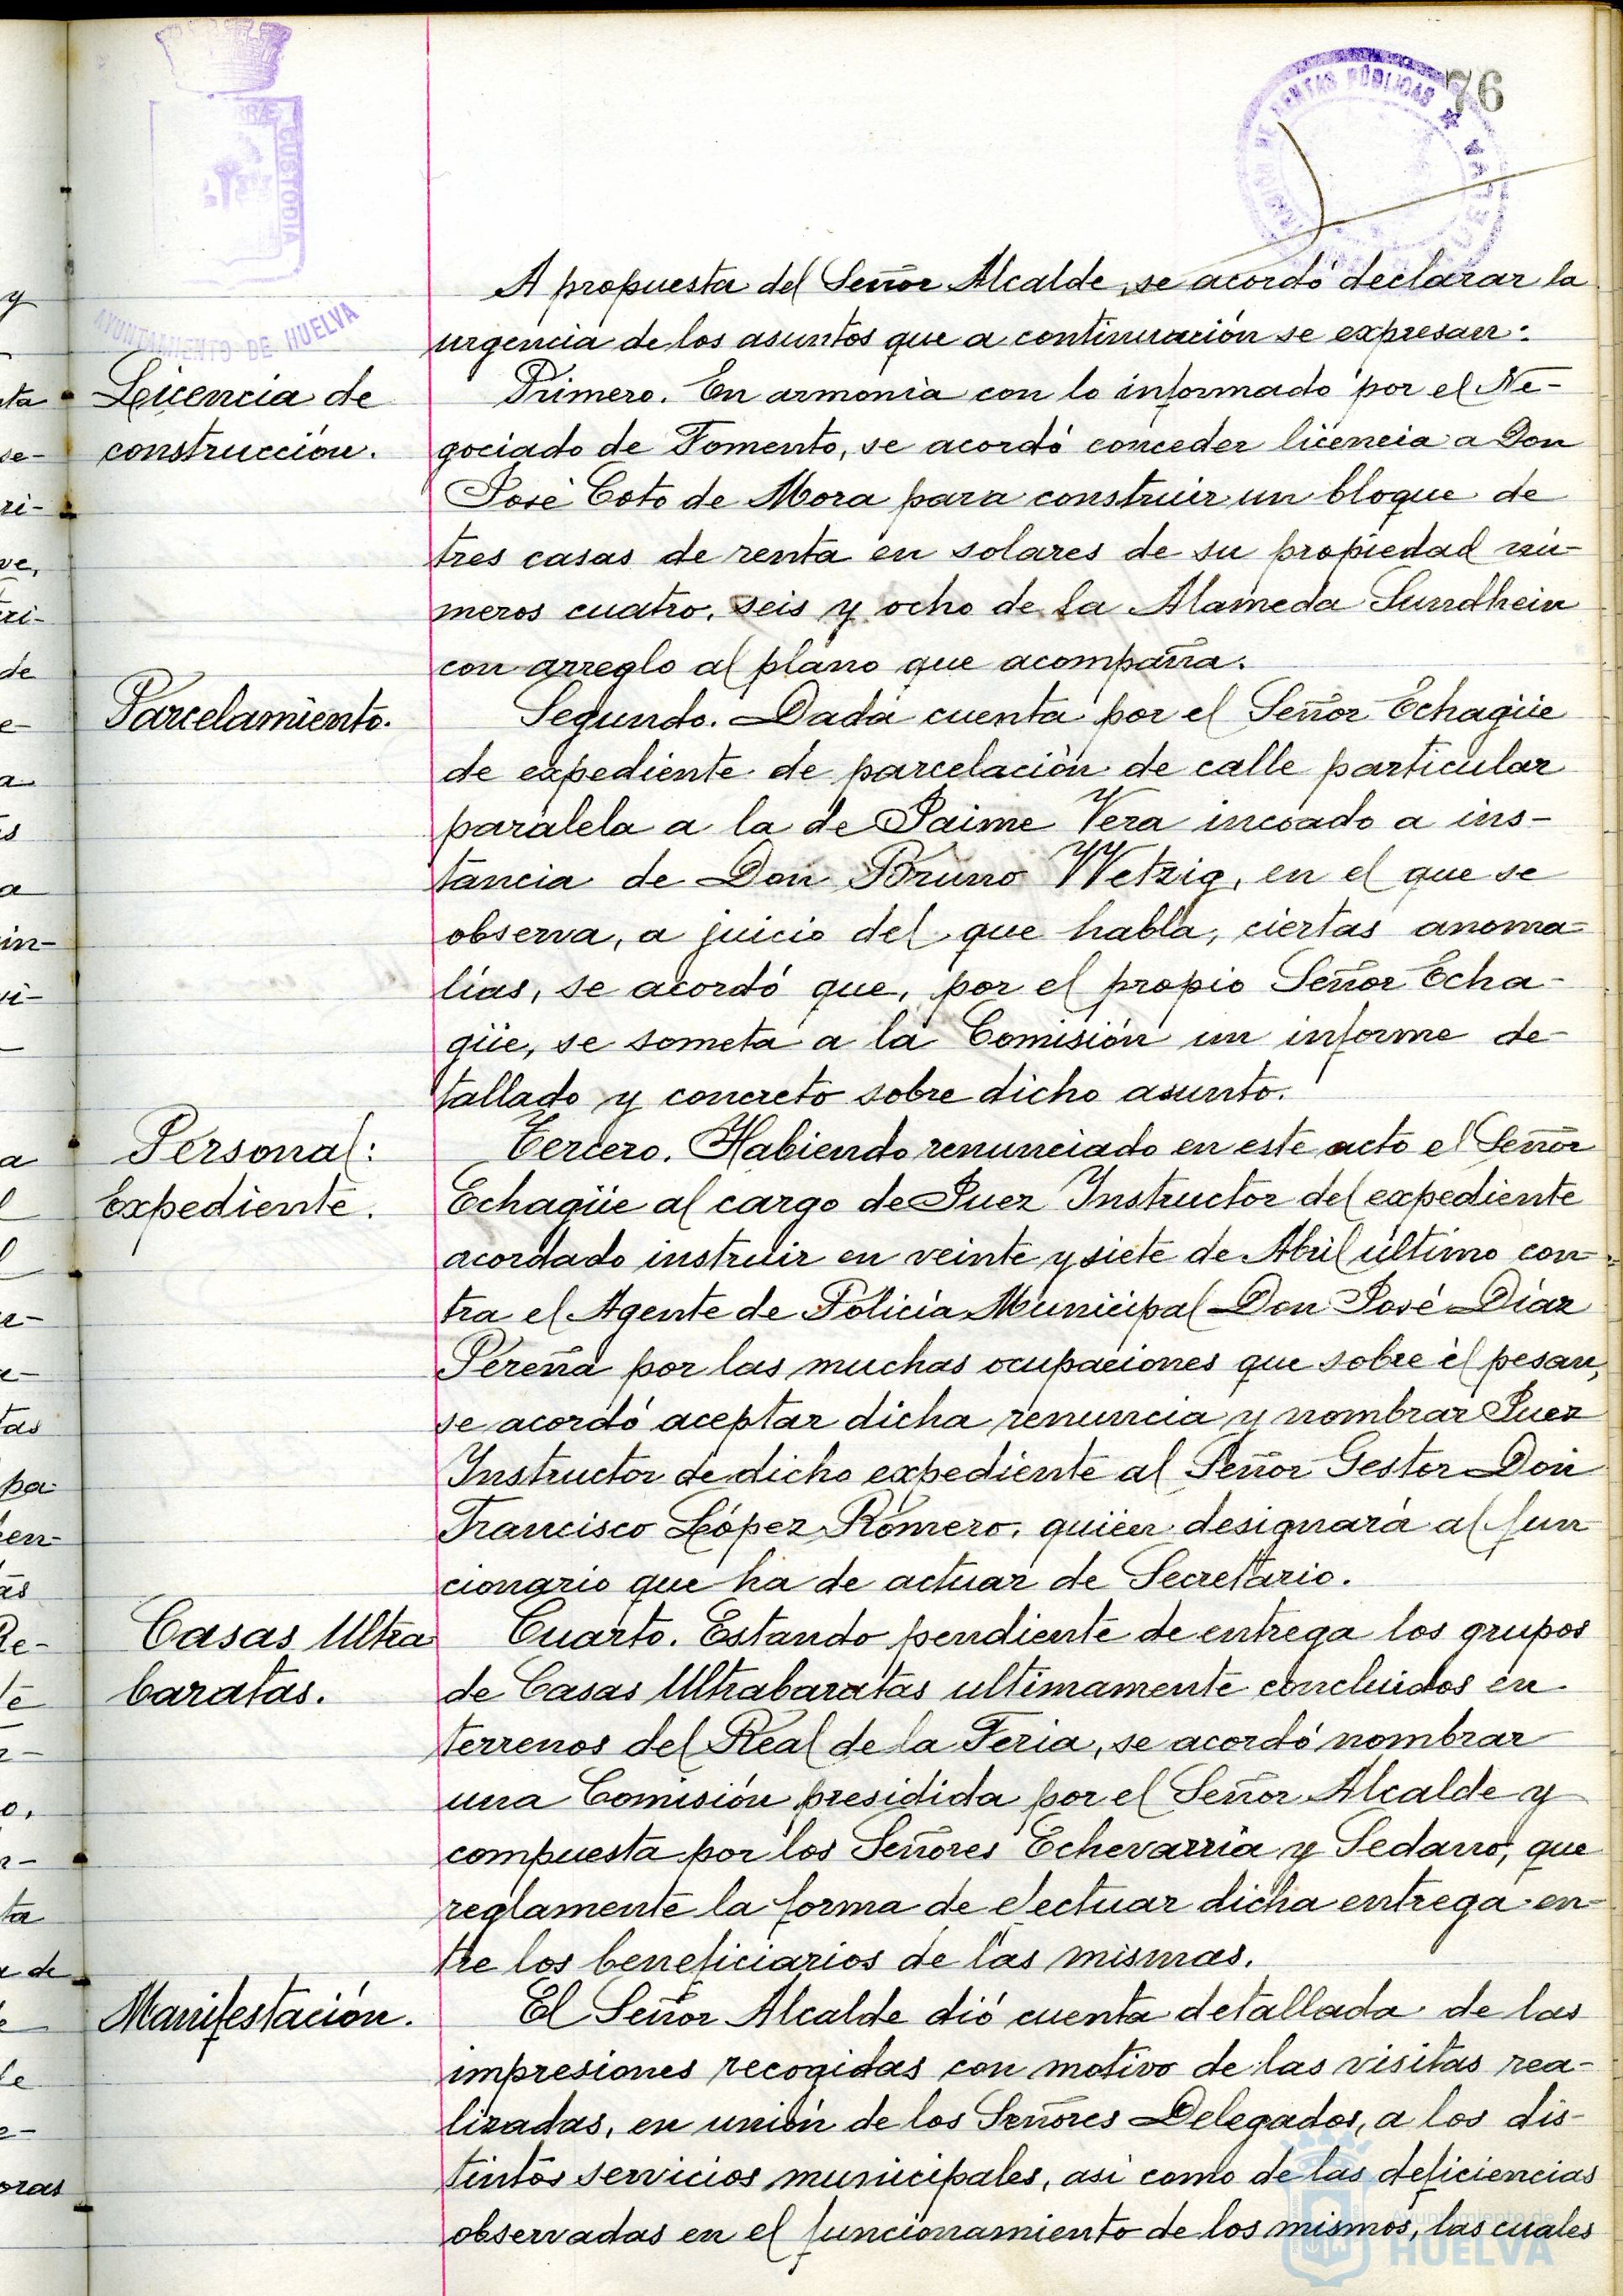 76
AYUNTAMIENTO DE HUELVA
CUSTODIA
A propuesta del Señor Alcalde, se acordó declarar la
urgencia de los asuntos que a continuación se expresan:
Licencia de
construcción.
Primero. En armonía con lo informado por el Ne-
gociado de Fomento, se acordó conceder licencia a Don
José Coto de Mora para construir un bloque de
tres casas de renta en solares de su propiedad nú-
meros cuatro, seis y ocho de la Alameda Sundhein
con arreglo al plano que acompaña.
Parcelamiento.
Segundo. Dada cuenta por el Señor Echagüe
de expediente de parcelación de calle particular
paralela a la de Jaime Vera incoado a ins-
tancia de Don Bruno Wetzig, en el que se
observa, a juicio del que habla, ciertas anoma-
lías, se acordó que, por el propio Señor Echa-
güe, se someta a la Comisión un informe de-
tallado y concreto sobre dicho asunto.
Personal:
Expediente.
Tercero. Habiendo renunciado en este acto el Señor
Echagüe al cargo de Juez Instructor del expediente
acordado instruir en veinte y siete de Abril último con-
tra el Agente de Policía Municipal Don José Díaz
Pereña por las muchas ocupaciones que sobre él pesan,
se acordó aceptar dicha renuncia y nombrar Juez
Instructor de dicho expediente al Señor Gestor Don
Francisco López Romero, quien designará al fun-
cionario que ha de actuar de Secretario.
Casas Ultra
baratas.
Cuarto. Estando pendiente de entrega los grupos
de Casas Ultrabaratas ultimamente concluidos en
terrenos del Real de la Feria, se acordó nombrar
una Comisión presidida por el Señor Alcalde y
compuesta por los Señores Echevarría y Sedano, que
reglamente la forma de efectuar dicha entrega en-
tre los beneficiarios de las mismas.
Manifestación.
El Señor Alcalde dió cuenta detallada de las
impresiones recogidas con motivo de las visitas rea-
lizadas, en unión de los Señores Delegados, a los dis-
tintos servicios municipales, así como de las deficiencias
observadas en el funcionamiento de los mismos, las cuales
Ayuntamiento de
HUELVA